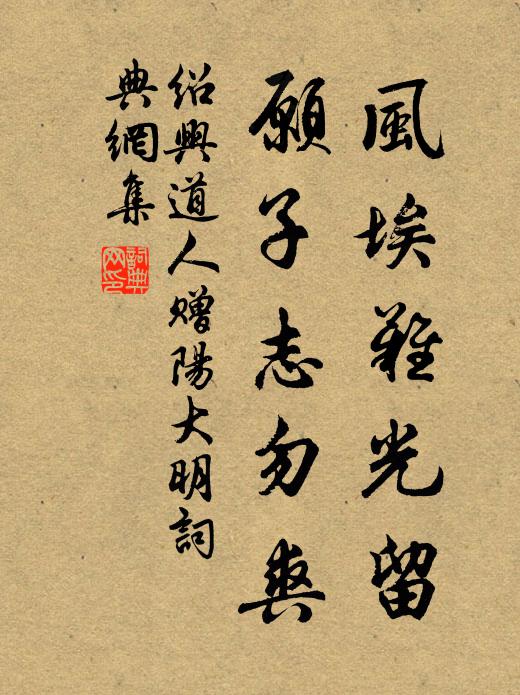 風埃難光留
願子志勿爽
紹興道人贈陽大明詞
典網集
詞典
网印